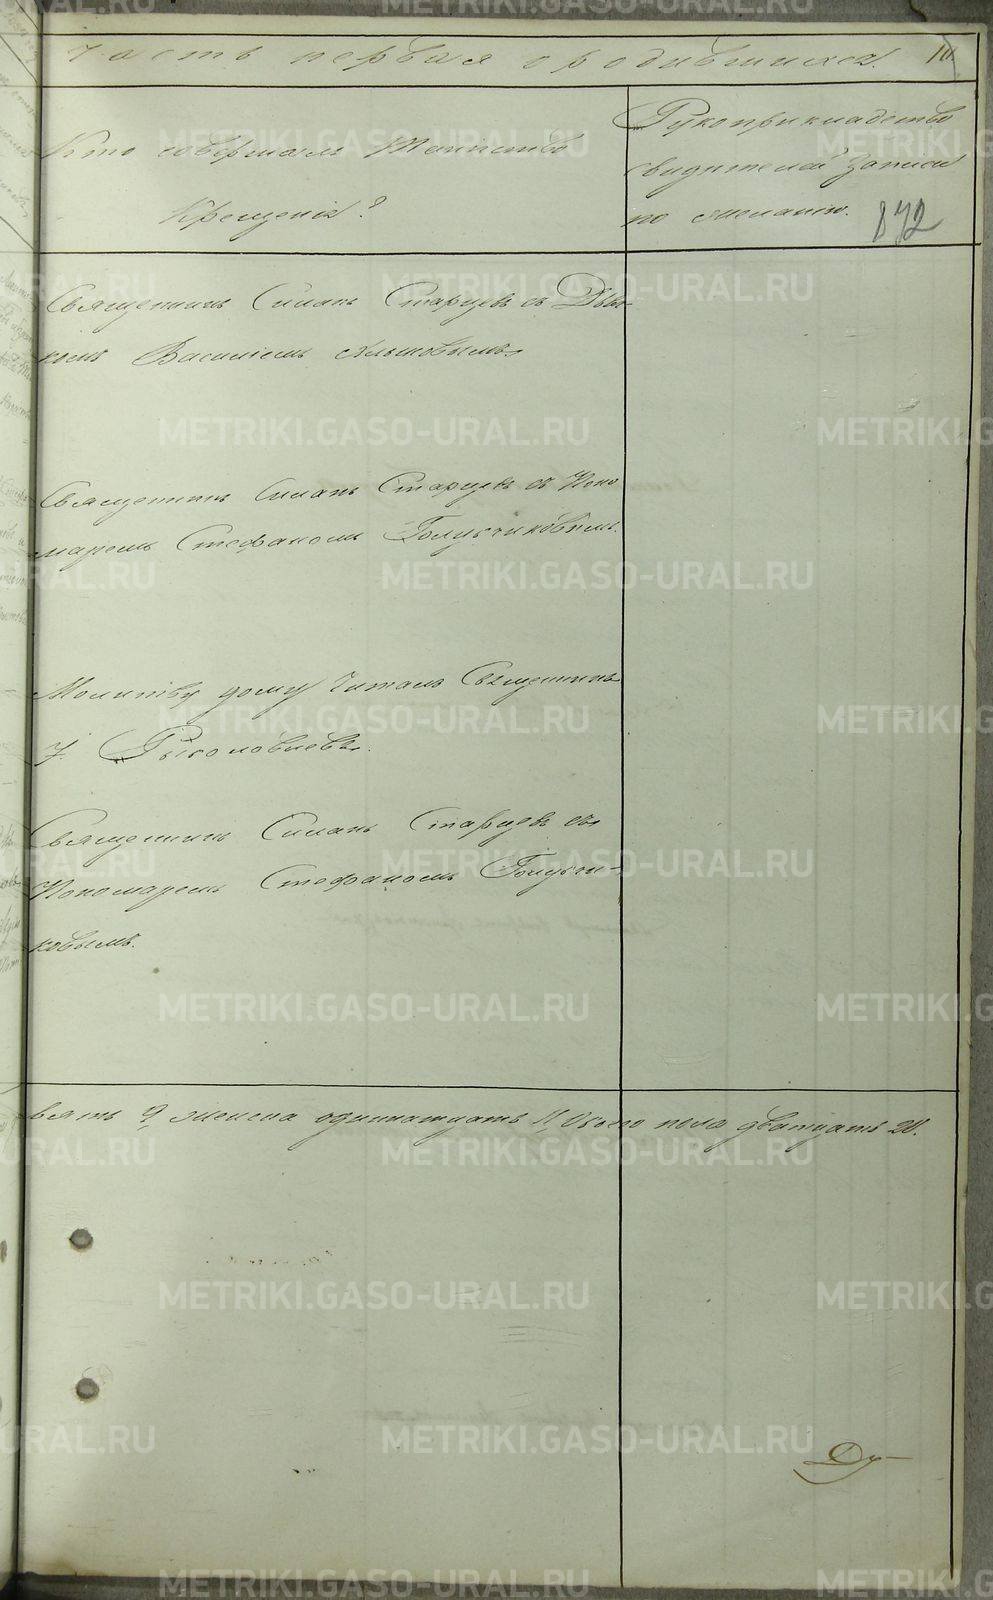 часть первая о родившихся.
Кто совершалъ Таинство
Крещенія?
Рукоприкладство
свидетелей записи
по желанію.
872
Священникъ Симонъ Старцевъ съ Дья-
комъ Василіемъ
Священникъ Симонъ Старцевъ съ Поно
маремъ Стефаномъ Голубчиковымъ.
Молитву дому Читалъ Священникъ
Священникъ Симонъ Старцевъ съ
Пономаремъ Стефаномъ Голубчи-
ковымъ.
вять 9 женска одиннатцать 11 Обоего пола дватцать 20.
METRIKI.GASO-URAL.RU